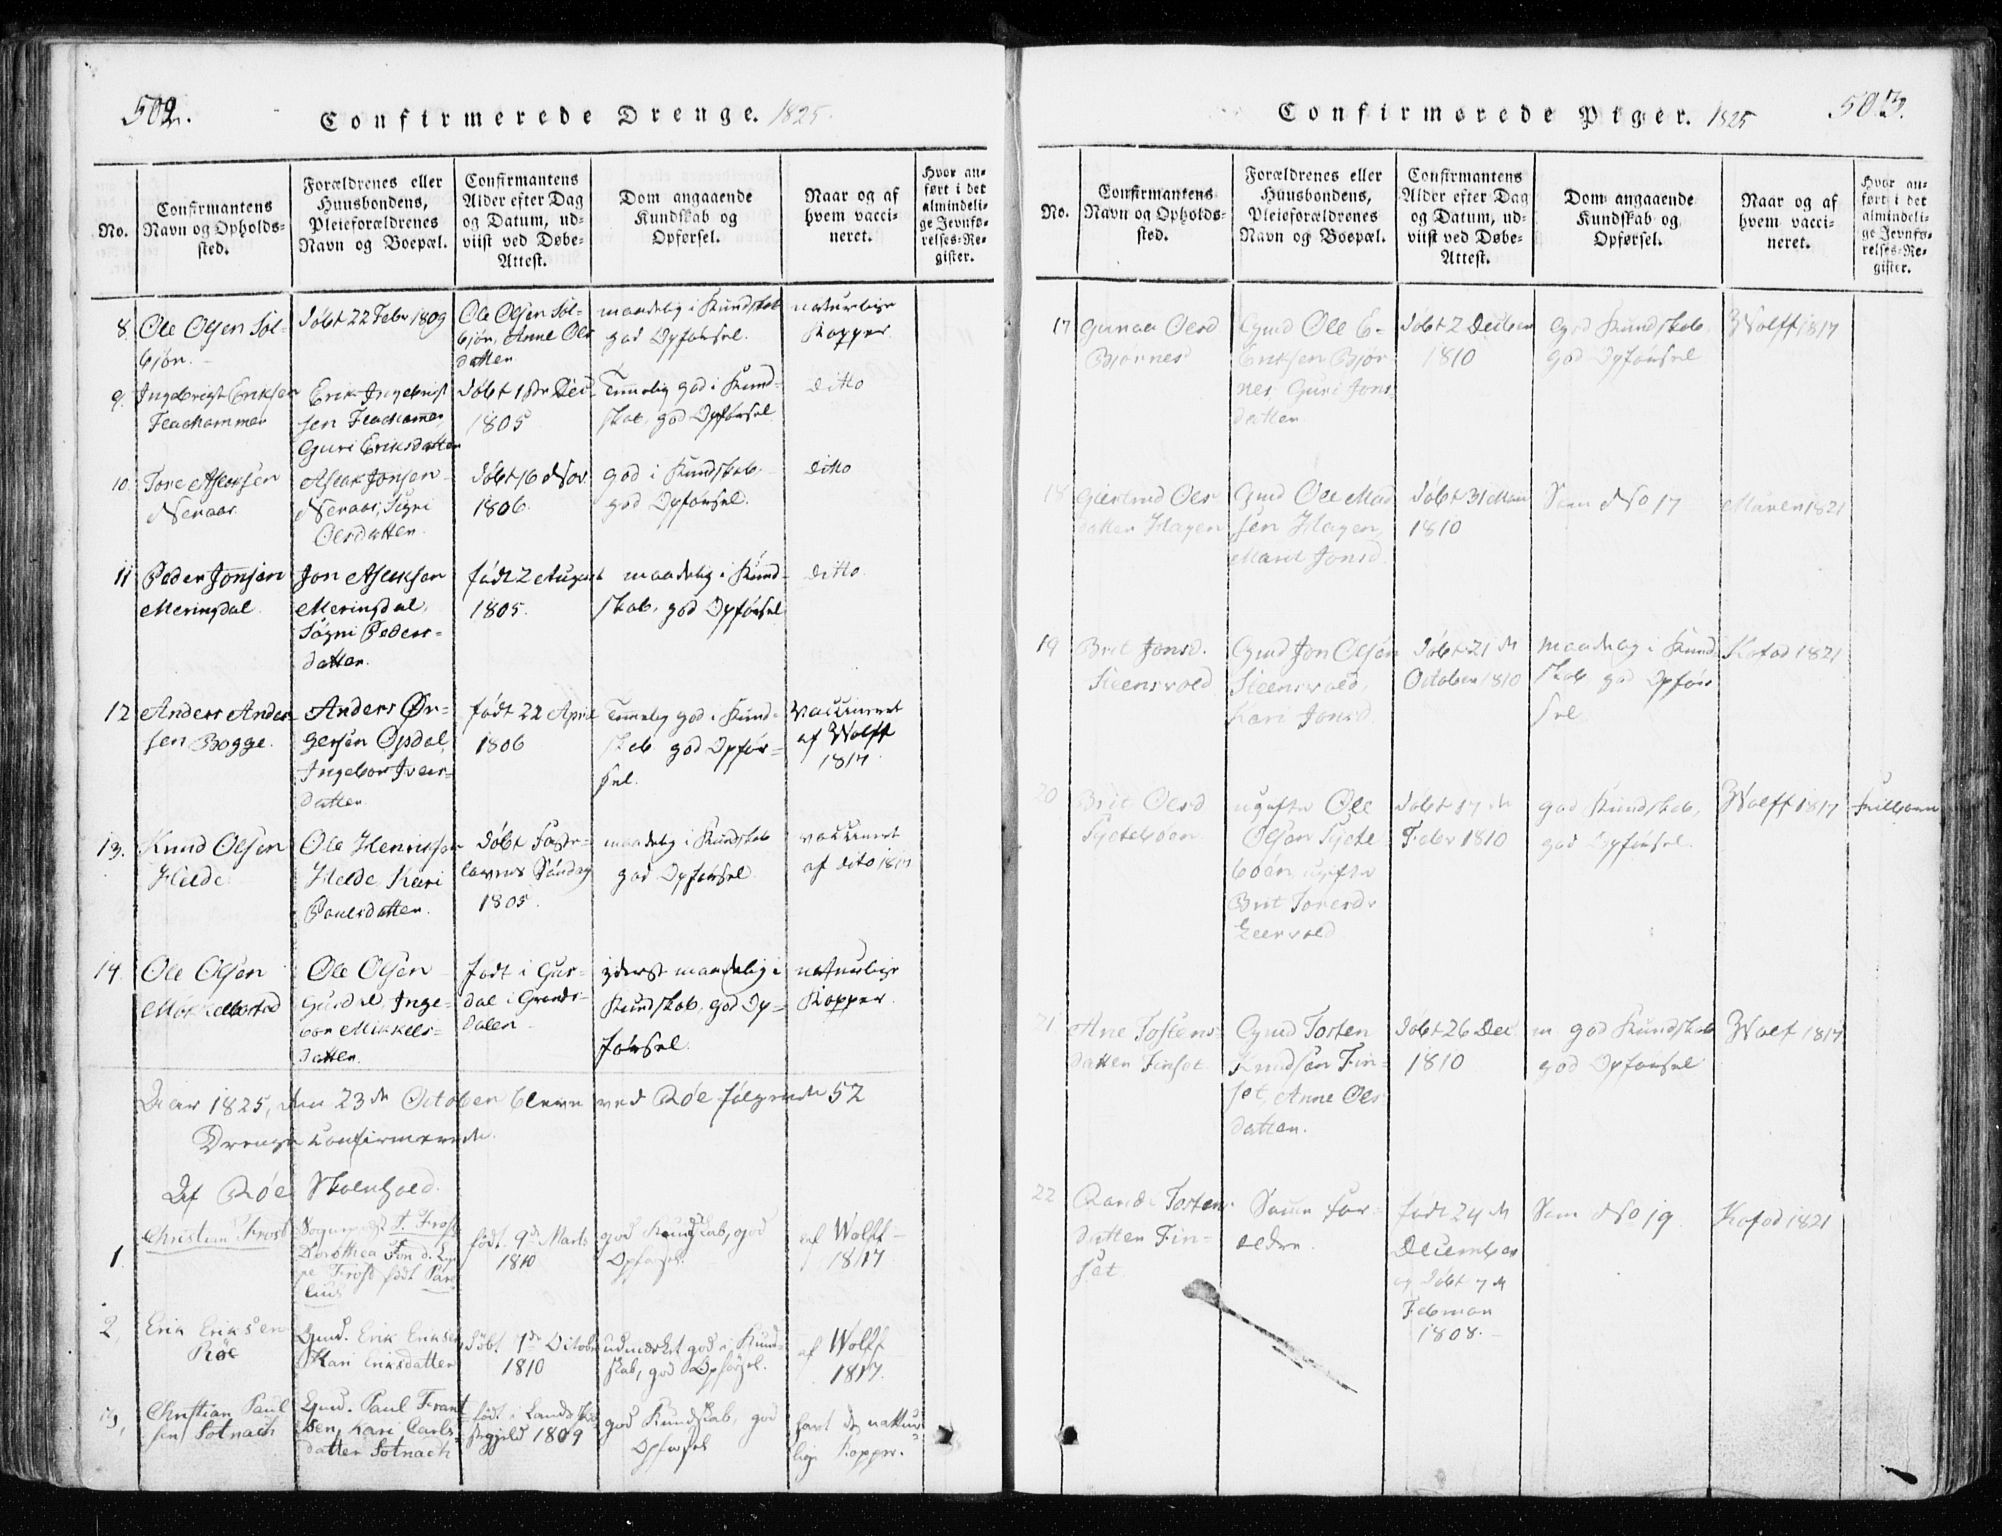 502.
Confirmerede Drenge. 1825.
No.
Confirmantens
Navn og Opholds-
sted.
Forældrenes eller
Huusbondens,
Pleieforældrenes
Navn og Boepæl.
Confirmantens
Alder efter Dag
og Datum, ud-
viist ved Døbe-
Attest.
Dom angaaende
Kundskab og
Opførsel.
Naar og af
hvem vacci-
neret.
Hvor an-
ført i det
almindeli-
ge Jevnfø-
relses-Re-
gister.
8. Ole Olsen Søl-
bjør.
døbt 22 Febr 1809
Ole Olsen Søl-
bjør, Anne Ols
datter
maadelig i Kundskab
god Opførsel.
naturlige
Kopper.
9. Ingebrigt Eriksen
Erik Ingebrigt
sen
Guri Eriksdatter
døbt 18de Dec
1805
Temmelig god i Kund-
skab, god Opførsel
ditto
10. Tore Aslaksen
Neraas
Aslak Jonsen
Neraas, Sigri
Olsdatter
døbt 16 Nov
1806
god i Kundskab,
god Opførsel.
ditto
11 Peder Jonsen
Meringdal
Jon Aslaksen
Meringdal,
Sigri Peders-
datter.
født 2 August
1805.
maadelig i Kund-
skab, god Opførsel
ditto
12 Anders Anders
sen Bogge.
Anders Ør-
gersen Opdal,
Ingebor Iver-
datter
født 22 April
1806
Temmelig god i Kund-
skab god Opfør-
sel.
vaccineret
af Wolff
1817
13. Knud Olsen
Helde
Ole Henriksen
Helde Kari
Paulsdatter.
Døbt Faste-
lavns Søndag
1805.
maadelig i Kundskab
god Opførsel
vaccineret
af dito 1817
14. Ole Olsen
Ole Olsen
Gusdal, Inge-
bor Mikkels-
datter.
født i Gus-
dal i Grøndr-
dalen
yderst maadelig i
Kundskab, god Op-
førsel.
naturlige
Kopper.
Aar 1825, den 23de October bleve ved Røe følgende 52
Drenge confirmerede.
Af Røe Skolehold.
1. Christian Frost
Sogneprest F. Frost
Dorothea
Frost født
født 9de Marts
1810
god Kundskab, god
Opførsel.
af Wolff
1817
2, Erik Eriksen
Røe
Gmd. Erik Eriksen
Kari Eriksdatter
døbt 1de October
1810
udmærket god i Kund-
skab, god Opførsel.
af Wolff
1817.
3, Christian Paul
sen Solnach
Gmd. Paul Frant
sen, Kari Carls-
datter Solnach
født i
1809
god Kundskab, god
Opførsel
havt de natur
lige Kopper.
Confirmerede Piger. 1825
503.
No.
Confirmantens
Navn og Opholds-
sted.
Forældrenes eller
Huusbondens,
Pleieforældrenes
Navn og Boepæl.
Confirmantens
Alder efter Dag
og Datum, ud-
viist ved Døbe-
Attest.
Dom angaaende
Kundskab og
Opførsel.
Naar og af
hvem vacci-
neret.
Hvor an-
ført i det
almindeli-
ge Jevnfø-
relses-Re-
gister.
17 Olsd
Bjørnes
Gmd Ole E-
Eriksen Bjør
nes Guri Jons
datter
døbt 2 December
1810
god Kundskab,
god Opførsel
Wolff 1817
18 Giertrud Ols
datter Hagen
Gmd Ole Mad
sen Hagen,
Marit Jonsd
døbt 31 Mai
1810
Som No 17
1821
19 Brit Jonsd.
Steensvold
Gmd Jon Olsen
Steensvold,
Kari Jonsd.
døbt 21 de
October 1810
maadelig i Kund
skab god Opfør
sel
Kofod 1821
20 Brit Olsd
ugifte Ole
Olsen
ugifte
Brit
døbt 17 de
Febr 1810
god Kundskab,
god Opførsel
Wolff 1817
21 Ane Tostens
datter Finset
Gmd Tosten
Knudsen Fin-
set, Anne Ols
datter.
døbt 26 Dec
1810
m god Kundskab
god Opførsel
Wolf 1817
22 Tostens
datter Fin-
set.
Samme For-
eldre.
født 24 de
December
og døbt 7 de
Februar
1808.
Som No 19
Kofod 1821